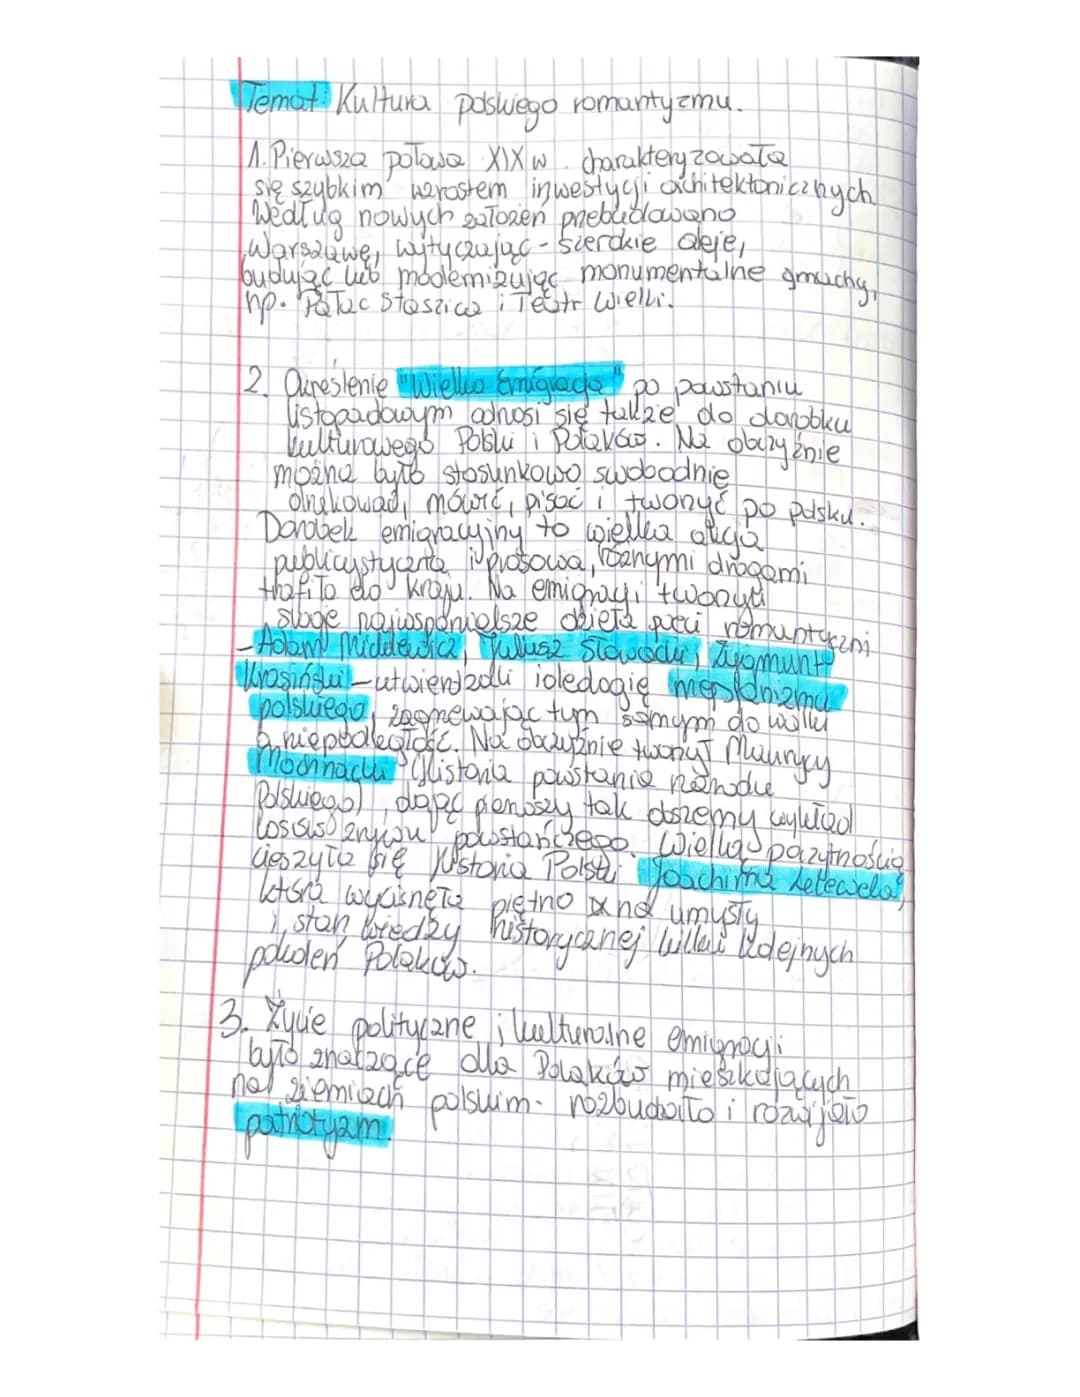 Temat: Kultura polskiego romantyzmu.
1. Pierwsza połowa XIX w. charakteryzowała
się szybkim wzrostem inwestycji architektonicznych
Według nowych założeń przebudowano
Warszawę, wytyczając - szerokie aleje,
budując lub modernizując monumentalne gmachy,
np. Pałac Staszica i Teatr Wielki.
2. Określenie "Wielka Emigracja" po powstaniu
listopadowym odnosi się także do dorobku
kulturowego Polski i Polaków. Na obczyźnie
można było stosunkowo swobodnie
drukować, mówić, pisać i tworzyć po polsku.
Dorobek emigracyjny to wielka akcja
publicystyczna i prasowa, różnymi drogami
trafiła do kraju. Na emigracji tworzyli
swoje najwspanialsze dzieła poeci romantyczni
- Adam Mickiewicz, Juliusz Słowacki, Zygmunt
Krasiński - utwierdzali ideologię mesjanizmu
polskiego, zagrzewając tym samym do walki
o niepodległość. Na obczyźnie tworzył Maurycy
Mochnacki (Historia powstania narodu
polskiego), dając pierwszy tak obszerny wykład
losów zrywu powstańczego. Wielką poczytnością
cieszyła się Historia Polski Joachima Lelewela,
która wycisnęła piętno na umysły
i stan wiedzy historycznej kilku kolejnych
pokoleń Polaków.
3. Życie polityczne i kulturalne emigracji
było znaczące dla Polaków mieszkających
na ziemiach polskim - rozbudzało i rozwijało
patriotyzm.